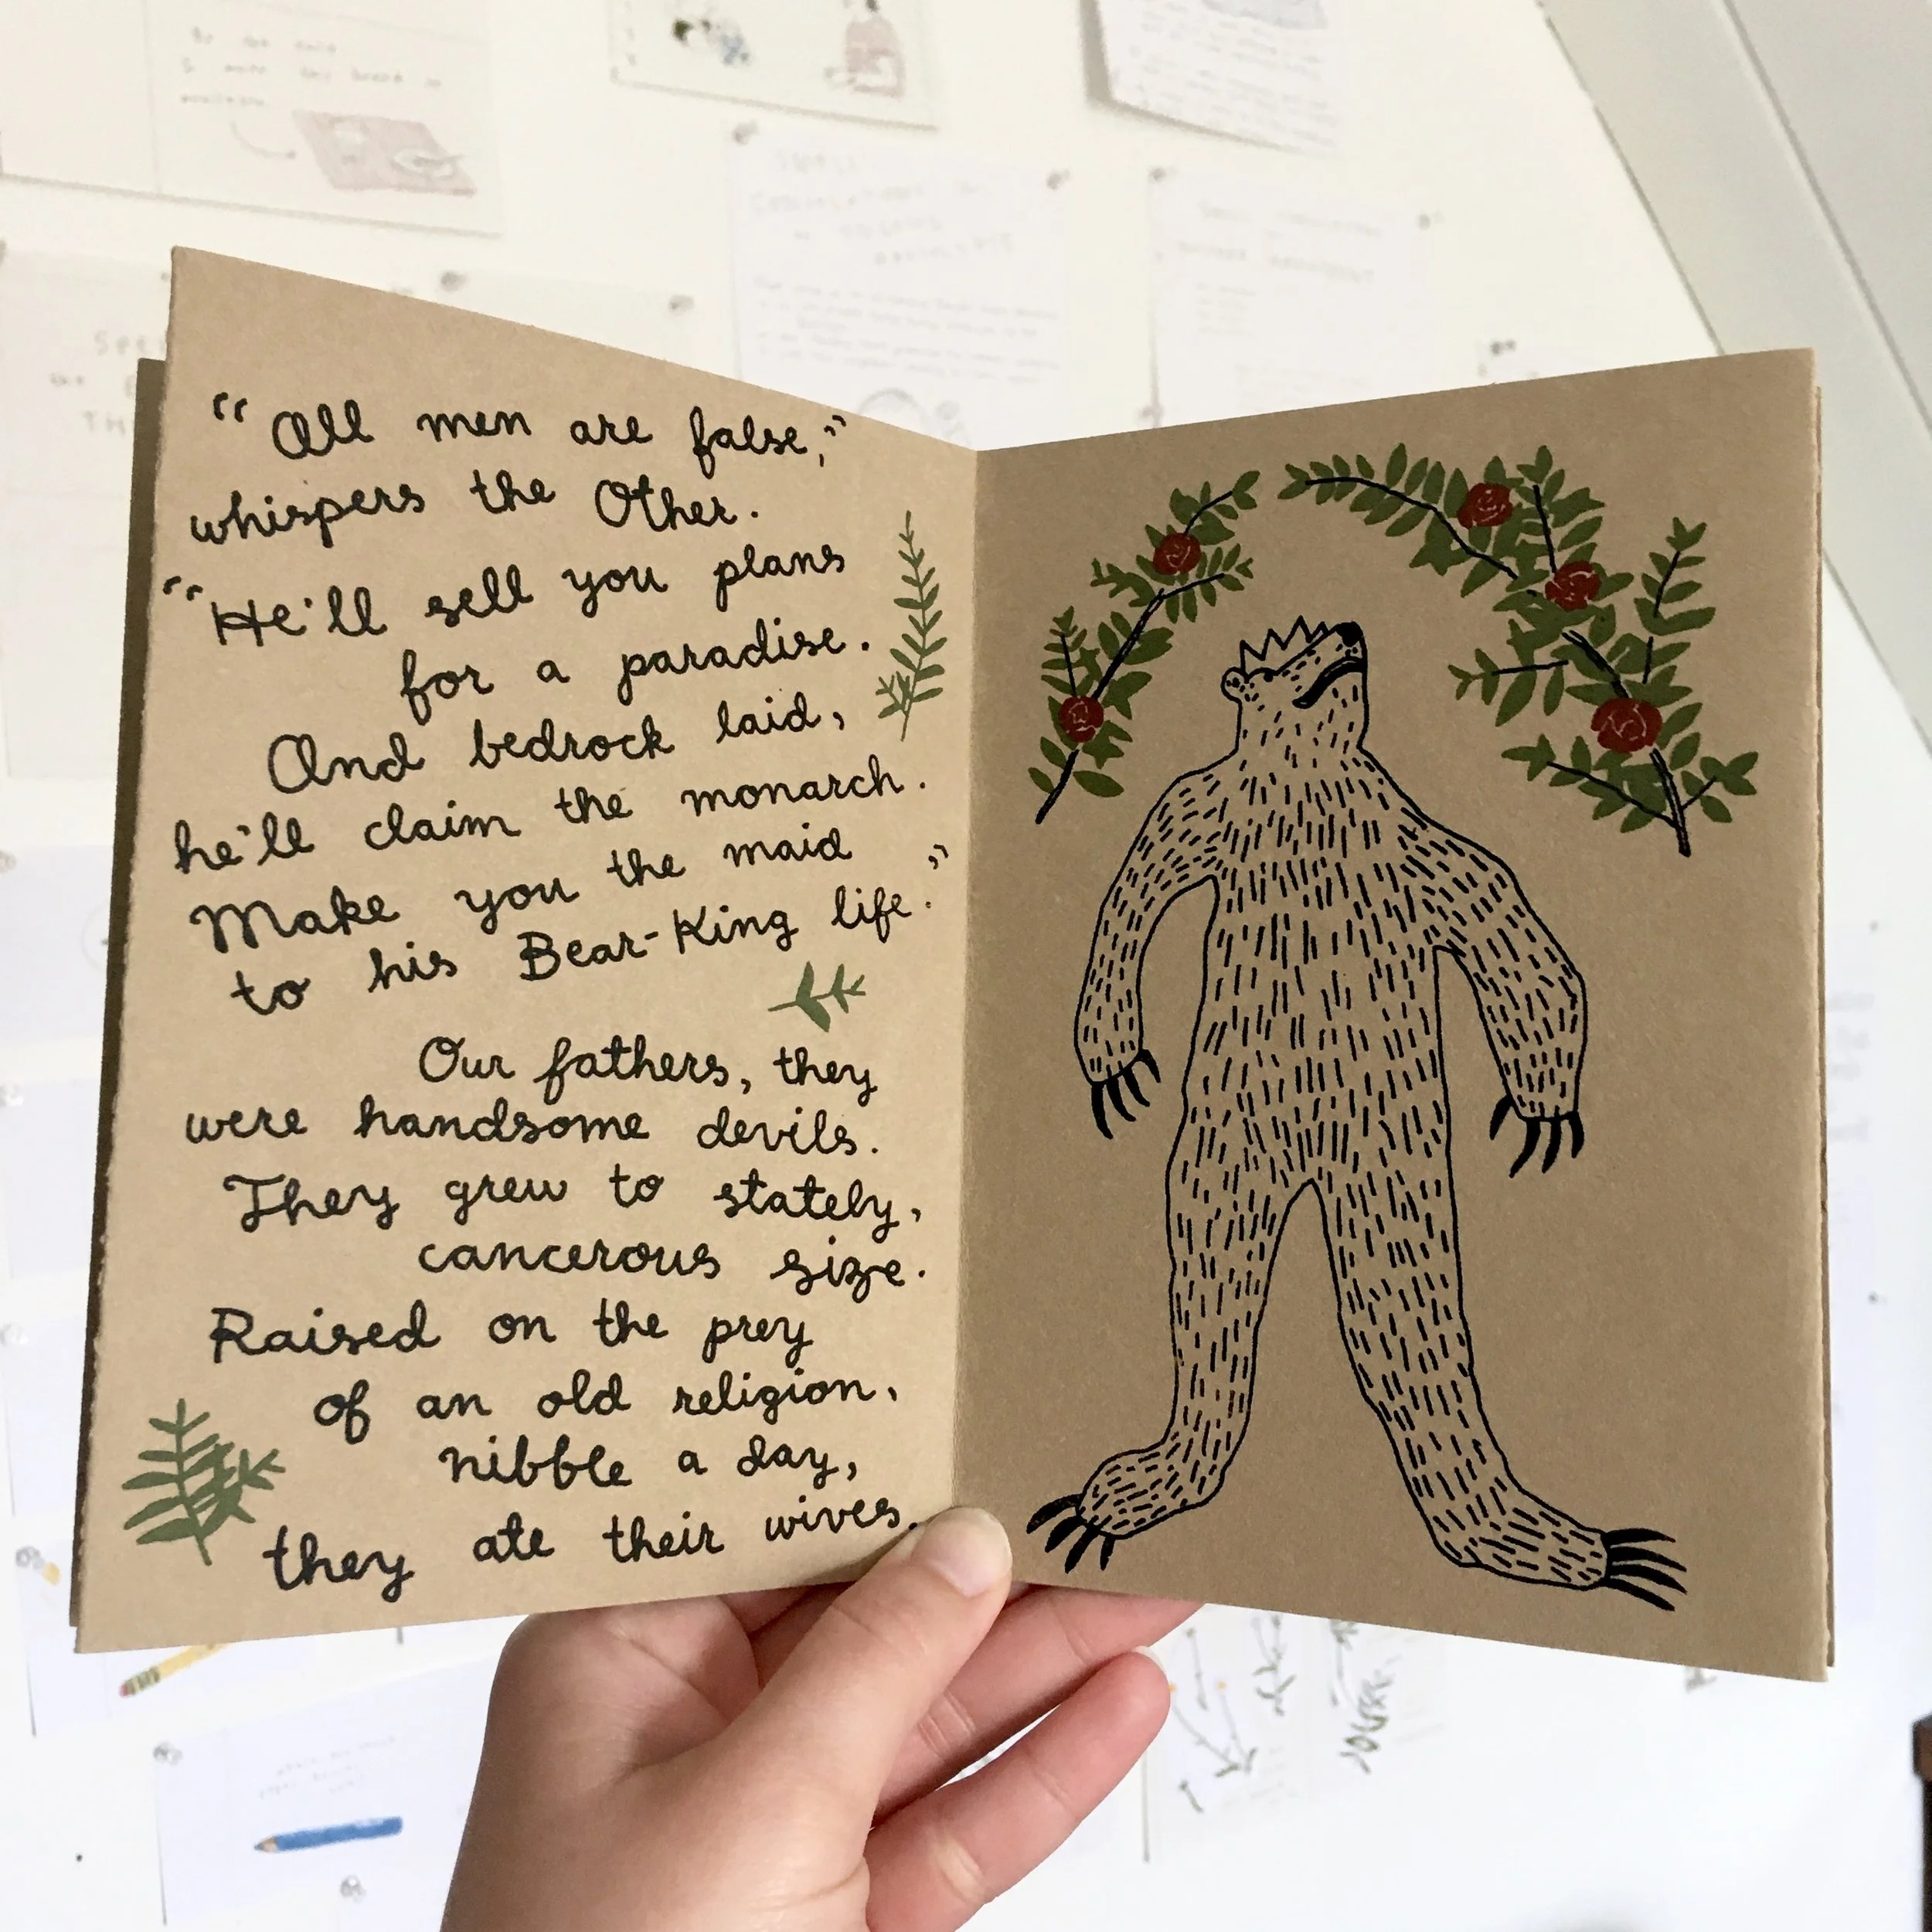 "All men are false,"
whispers the Other.
"He'll sell you plans
for a paradise.
And bedrock laid,
he'll claim the monarch.
Make you the maid
to his Bear-King life."
Our fathers, they
were handsome devils.
They grew to stately,
cancerous size.
Raised on the prey
of an old religion,
nibble a day,
they ate their wives.